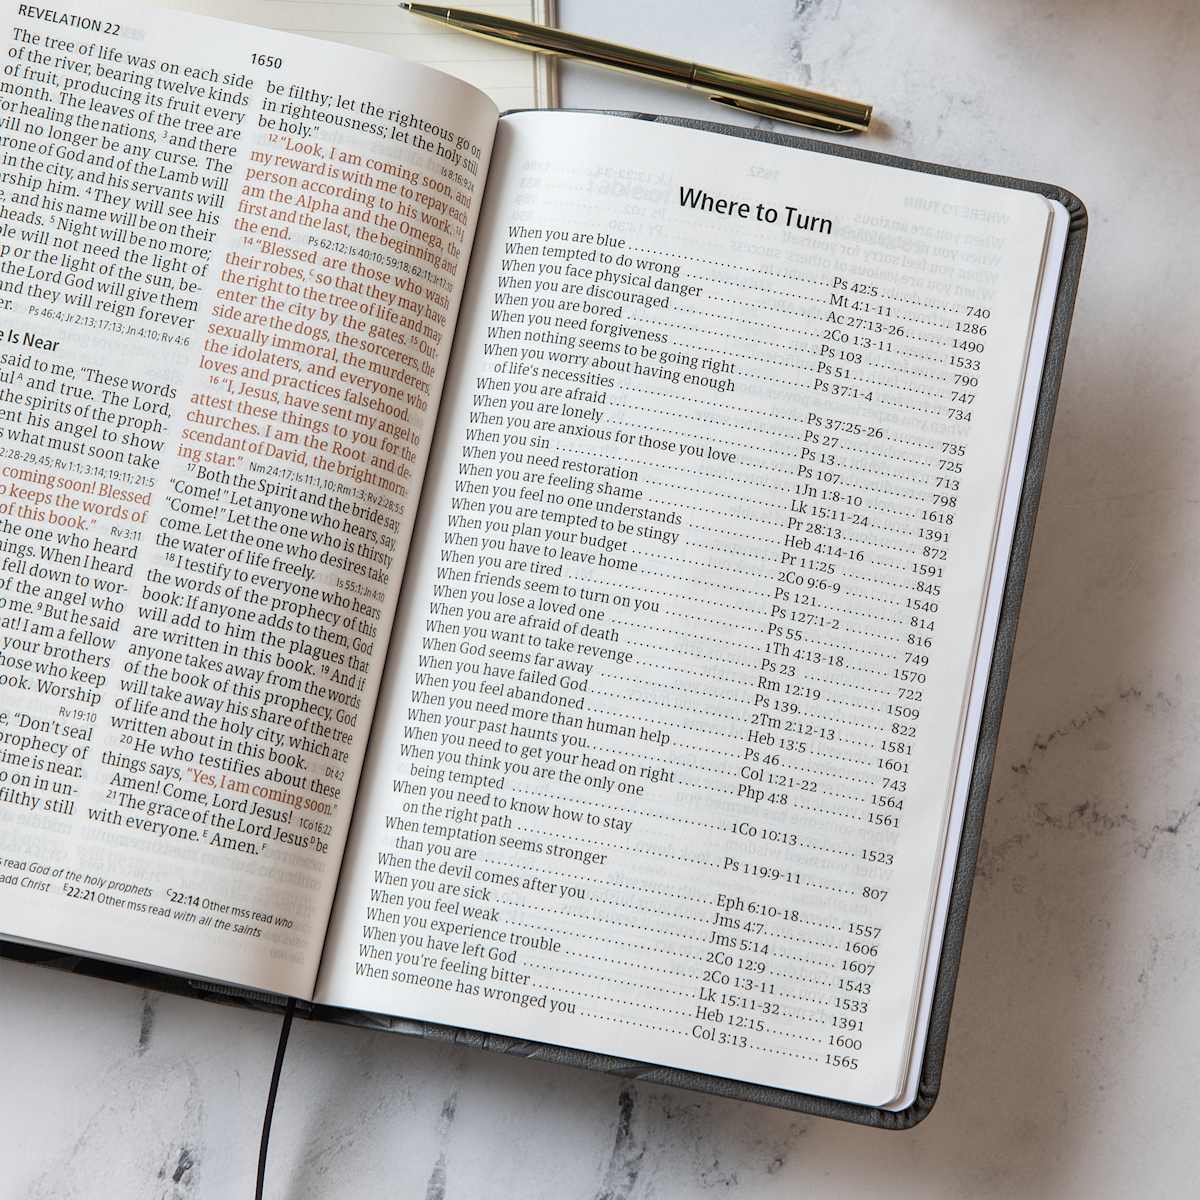 REVELATION 22
1650
The tree of life was on each side
of the river, bearing twelve kinds
of fruit, producing its fruit every
month. The leaves of the tree are
for healing the nations, 3 and there
will no longer be any curse. The
throne of God and of the Lamb will
in the city, and his servants will
worship him. 4 They will see his
and his name will be on their
heads. 5 Night will be no more;
will not need the light of
or the light of the sun, be-
the Lord God will give them
and they will reign forever
Ps 46:4; Jr 2:13; 17:13; Jn 4:10; Rv 4:6
Is Near
said to me, "These words
A and true. The Lord,
the spirits of the proph-
sent his angel to show
what must soon take
2:28-29,45; Rv 1:1; 3:14; 19:11; 21:5
coming soon! Blessed
keeps the words of
of this book." Rv 3:11
the one who heard
things. When I heard
fell down to wor-
of the angel who
me. 9 But he said
that! I am a fellow
your brothers
those who keep
book. Worship
Rv 19:10
"Don't seal
prophecy of
time is near.
go on in un-
filthy still
be filthy; let the righteous go on
in righteousness; let the holy still
be holy." Is 8:16; 9:24
12 "Look, I am coming soon, and
my reward is with me to repay each
person according to his work. 13 I
am the Alpha and the Omega, the
first and the last, the beginning and
the end. Ps 62:12; Is 40:10; 59:18; 62:11; Jr 17:10
14 "Blessed are those who wash
their robes, C so that they may have
the right to the tree of life and may
enter the city by the gates. 15 Out-
side are the dogs, the sorcerers, the
sexually immoral, the murderers,
the idolaters, and everyone who
loves and practices falsehood.
16 "I, Jesus, have sent my angel to
attest these things to you for the
churches. I am the Root and de-
scendant of David, the bright morn-
ing star." Nm 24:17; Is 11:1,10; Rm 1:3; Rv 2:28; 5:5
17 Both the Spirit and the bride say,
"Come!" Let anyone who hears, say,
"Come!" Let the one who is thirsty
come. Let the one who desires take
the water of life freely. Is 55:1; Jn 4:10
18 I testify to everyone who hears
the words of the prophecy of this
book: If anyone adds to them, God
will add to him the plagues that
are written in this book. 19 And if
anyone takes away from the words
of the book of this prophecy, God
will take away his share of the tree
of life and the holy city, which are
written about in this book. Dt 4:2
20 He who testifies about these
things says, "Yes, I am coming soon."
Amen! Come, Lord Jesus! 1Co 16:22
21 The grace of the Lord Jesus D be
with everyone. E Amen. F
read God of the holy prophets C22:14 Other mss read who
add Christ E22:21 Other mss read with all the saints
Where to Turn
When you are blue ..... Ps 42:5 ..... 740
When tempted to do wrong ..... Mt 4:1-11 ..... 1286
When you face physical danger ..... Ac 27:13-26 ..... 1490
When you are discouraged ..... 2Co 1:3-11 ..... 1533
When you are bored ..... Ps 103 ..... 790
When you need forgiveness ..... Ps 51 ..... 747
When nothing seems to be going right ..... Ps 37:1-4 ..... 734
When you worry about having enough
of life's necessities ..... Ps 37:25-26 ..... 735
When you are afraid ..... Ps 27 ..... 725
When you are lonely ..... Ps 13 ..... 713
When you are anxious for those you love ..... Ps 107 ..... 798
When you sin ..... 1Jn 1:8-10 ..... 1618
When you need restoration ..... Lk 15:11-24 ..... 1391
When you are feeling shame ..... Pr 28:13 ..... 872
When you feel no one understands ..... Heb 4:14-16 ..... 1591
When you are tempted to be stingy ..... Pr 11:25 ..... 845
When you plan your budget ..... 2Co 9:6-9 ..... 1540
When you have to leave home ..... Ps 121 ..... 814
When you are tired ..... Ps 127:1-2 ..... 816
When friends seem to turn on you ..... Ps 55 ..... 749
When you lose a loved one ..... 1Th 4:13-18 ..... 1570
When you are afraid of death ..... Ps 23 ..... 722
When you want to take revenge ..... Rm 12:19 ..... 1509
When God seems far away ..... Ps 139 ..... 822
When you have failed God ..... 2Tm 2:12-13 ..... 1581
When you feel abandoned ..... Heb 13:5 ..... 1601
When you need more than human help ..... Ps 46 ..... 743
When your past haunts you ..... Col 1:21-22 ..... 1564
When you need to get your head on right ..... Php 4:8 ..... 1561
When you think you are the only one
being tempted ..... 1Co 10:13 ..... 1523
When you need to know how to stay
on the right path ..... Ps 119:9-11 ..... 807
When temptation seems stronger
than you are ..... Eph 6:10-18 ..... 1557
When the devil comes after you ..... Jms 4:7 ..... 1606
When you are sick ..... Jms 5:14 ..... 1607
When you feel weak ..... 2Co 12:9 ..... 1543
When you experience trouble ..... 2Co 1:3-11 ..... 1533
When you have left God ..... Lk 15:11-32 ..... 1391
When you're feeling bitter ..... Heb 12:15 ..... 1600
When someone has wronged you ..... Col 3:13 ..... 1565